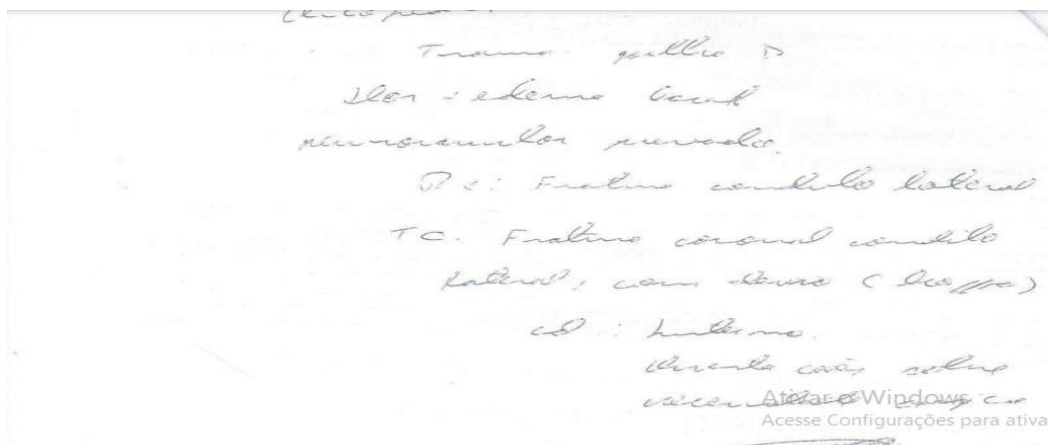 Ortopedia:
Trauma joelho D
Dor + edema local
neurovascular preservado.
Rx: Fratura condilo lateral
TC. Fratura coronal condilo
lateral, com desvio (Hoffa)
cd: Interno.
sobre
Ativar o Windows
Acesse Configurações para ativa